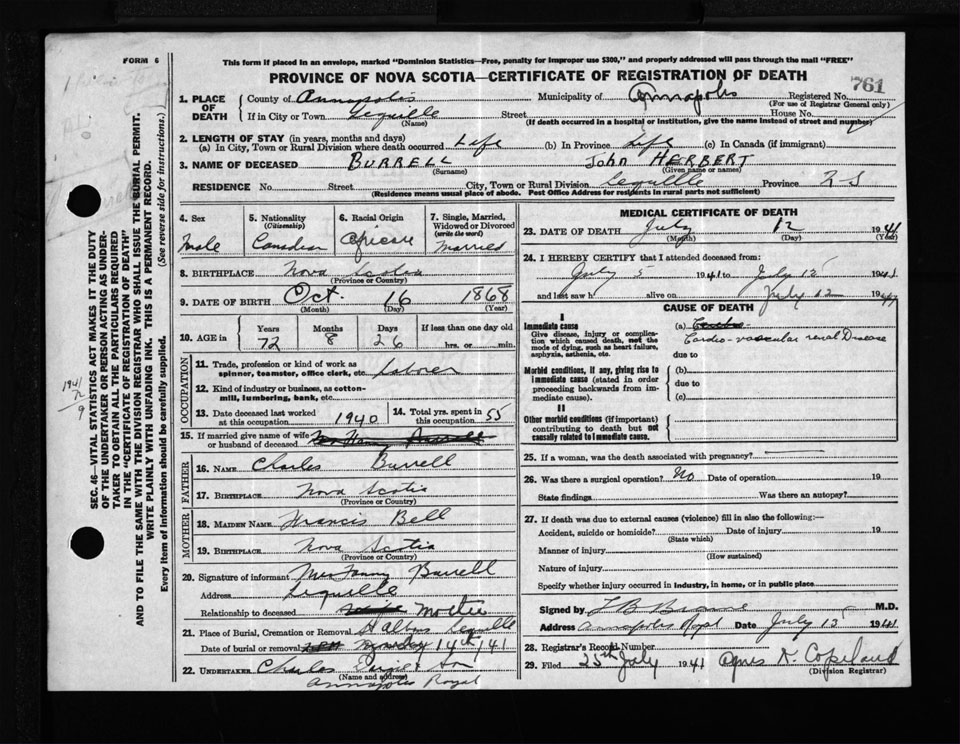 FORM 6
This form if placed in an envelope, marked "Dominion Statistics—Free, penalty for improper use $300," and properly addressed will pass through the mail "FREE"
PROVINCE OF NOVA SCOTIA—CERTIFICATE OF REGISTRATION OF DEATH
761
1. PLACE OF DEATH
County of Annapolis Municipality of Annapolis Registered No.
(For use of Registrar General only)
If in City or Town Lequille Street House No.
(Name) (If death occurred in a hospital or institution, give the name instead of street and number)
2. LENGTH OF STAY (in years, months and days)
(a) In City, Town or Rural Division where death occurred Life (b) In Province Life (c) In Canada (if immigrant)
3. NAME OF DECEASED BURRELL John HERBERT
(Surname) (Given name or names)
RESIDENCE No. Street City, Town or Rural Division Lequille Province N S
(Residence means usual place of abode. Post Office Address for residents in rural parts not sufficient)
4. Sex
Male
5. Nationality (Citizenship)
Canadian
6. Racial Origin
7. Single, Married, Widowed or Divorced (write the word)
Married
8. BIRTHPLACE Nova Scotia
(Province or Country)
9. DATE OF BIRTH Oct. 16 1868
(Month) (Day) (Year)
10. AGE in
Years Months Days If less than one day old
72 8 26 hrs. or min.
OCCUPATION
11. Trade, profession or kind of work as spinner, teamster, office clerk, etc. Laborer
12. Kind of industry or business, as cotton-mill, lumbering, bank, etc.
13. Date deceased last worked at this occupation 1940
14. Total yrs. spent in this occupation 55
15. If married give name of wife or husband of deceased
FATHER
16. NAME Charles Burrell
17. BIRTHPLACE Nova Scotia
(Province or Country)
MOTHER
18. MAIDEN NAME Francis Bell
19. BIRTHPLACE Nova Scotia
(Province or Country)
20. Signature of informant Mrs Fanny Burrell
Address Lequille
Relationship to deceased
21. Place of Burial, Cremation or Removal St Albans Lequille
Date of burial or removal 14th, 41
22. UNDERTAKER Charles
(Name and address)
Annapolis Royal
MEDICAL CERTIFICATE OF DEATH
23. DATE OF DEATH July 12 1941
(Month) (Day) (Year)
24. I HEREBY CERTIFY that I attended deceased from:
July 5 1941 to July 12 1941
and last saw h alive on July 12 1941
CAUSE OF DEATH
I
Immediate cause
Give disease, injury or complication which caused death, not the mode of dying, such as heart failure, asphyxia, asthenia, etc.
(a)
Cardio-vascular renal Disease
due to
Morbid conditions, if any, giving rise to immediate cause (stated in order proceeding backwards from immediate cause).
(b)
due to
(c)
II
Other morbid conditions (if important) contributing to death but not causally related to immediate cause.
25. If a woman, was the death associated with pregnancy?
26. Was there a surgical operation? No Date of operation 19
State findings Was there an autopsy?
27. If death was due to external causes (violence) fill in also the following:—
Accident, suicide or homicide? Date of injury 19
(State which)
Manner of injury
(How sustained)
Nature of injury
Specify whether injury occurred in industry, in home, or in public place
Signed by M.D.
Address Annapolis Royal Date July 1941
28. Registrar's Record Number
29. Filed 25th July 1941 Agnes K. Copeland
(Division Registrar)
SEC. 46—VITAL STATISTICS ACT MAKES IT THE DUTY
OF THE UNDERTAKER OR PERSON ACTING AS UNDER-
TAKER TO OBTAIN ALL THE PARTICULARS REQUIRED
IN THE "CERTIFICATE OF REGISTRATION OF DEATH"
AND TO FILE THE SAME WITH THE DIVISION REGISTRAR WHO SHALL ISSUE THE BURIAL PERMIT.
WRITE PLAINLY WITH UNFADING INK. THIS IS A PERMANENT RECORD.
Every item of information should be carefully supplied. (See reverse side for instructions.)
1941